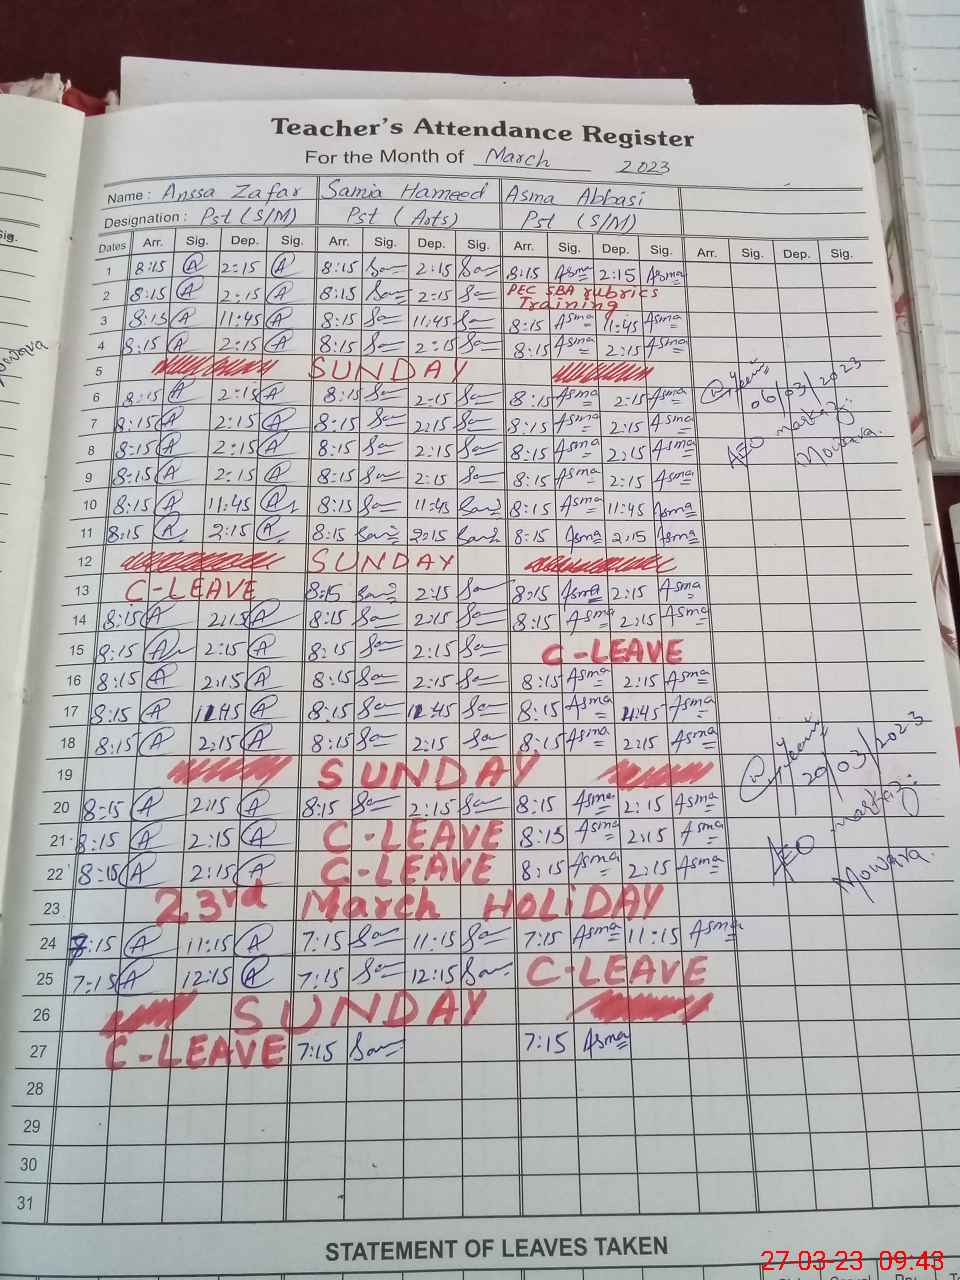 Teacher's Attendance Register
For the Month of March 2023
Name : Anssa Zafar Samia Hameed Asma Abbasi
Designation : Pst (S/M) Pst (Arts) Pst (S/M)
Dates Arr. Sig. Dep. Sig. Arr. Sig. Dep. Sig. Arr. Sig. Dep. Sig. Arr. Sig. Dep. Sig.
1 8:15 A 2:15 A 8:15 2:15 8:15 Asma 2:15 Asma
2 8:15 A 2:15 A 8:15 2:15 PEC SBA rubrics Training
3 8:15 A 11:45 A 8:15 11:45 8:15 Asma 11:45 Asma
4 8:15 A 2:15 A 8:15 2:15 8:15 Asma 2:15 Asma
5 SUNDAY
6 8:15 A 2:15 A 8:15 2:15 8:15 Asma 2:15 Asma
7 8:15 A 2:15 A 8:15 2:15 8:15 Asma 2:15 Asma
8 8:15 A 2:15 A 8:15 2:15 8:15 Asma 2:15 Asma
9 8:15 A 2:15 A 8:15 2:15 8:15 Asma 2:15 Asma
10 8:15 A 11:45 A 8:15 11:45 8:15 Asma 11:45 Asma
11 8:15 A 2:15 A 8:15 2:15 8:15 Asma 2:15 Asma
06/03/2023
AEO markaz
Mowara.
12 SUNDAY
13 C-LEAVE 8:15 2:15 8:15 Asma 2:15 Asma
14 8:15 A 2:15 A 8:15 2:15 8:15 Asma 2:15 Asma
15 8:15 A 2:15 A 8:15 2:15 C-LEAVE
16 8:15 A 2:15 A 8:15 2:15 8:15 Asma 2:15 Asma
17 8:15 A 11:45 A 8:15 11:45 8:15 Asma 11:45 Asma
18 8:15 A 2:15 A 8:15 2:15 8:15 Asma 2:15 Asma
19 SUNDAY
20 8:15 A 2:15 A 8:15 2:15 8:15 Asma 2:15 Asma
21 8:15 A 2:15 A C-LEAVE 8:15 Asma 2:15 Asma
22 8:15 A 2:15 A C-LEAVE 8:15 Asma 2:15 Asma
20/03/2023
AEO markaz
Mowara.
23 23rd March HOLiDAY
24 7:15 A 11:15 A 7:15 11:15 7:15 Asma 11:15 Asma
25 7:15 A 12:15 A 7:15 12:15 C-LEAVE
26 SUNDAY
27 C-LEAVE 7:15 7:15 Asma
28
29
30
31
STATEMENT OF LEAVES TAKEN
27-03-23 09:43